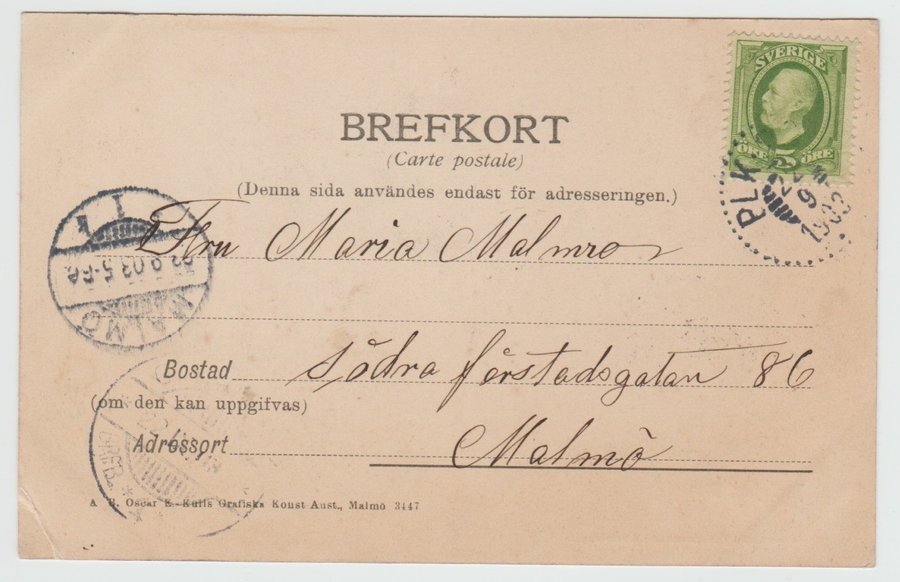 SVERIGE
ÖRE 5 ÖRE
BREFKORT
(Carte postale)
(Denna sida användes endast för adresseringen.)
PLK
22
9
1903
Fru Maria Malmros
22.9.03.5-F
MALMÖ
Bostad Södra förstadsgatan 86
(om den kan uppgifvas)
Adressort Malmö
GREB.
A. B. Oscar E. Kulls Grafiska Konst Anst., Malmö 3447